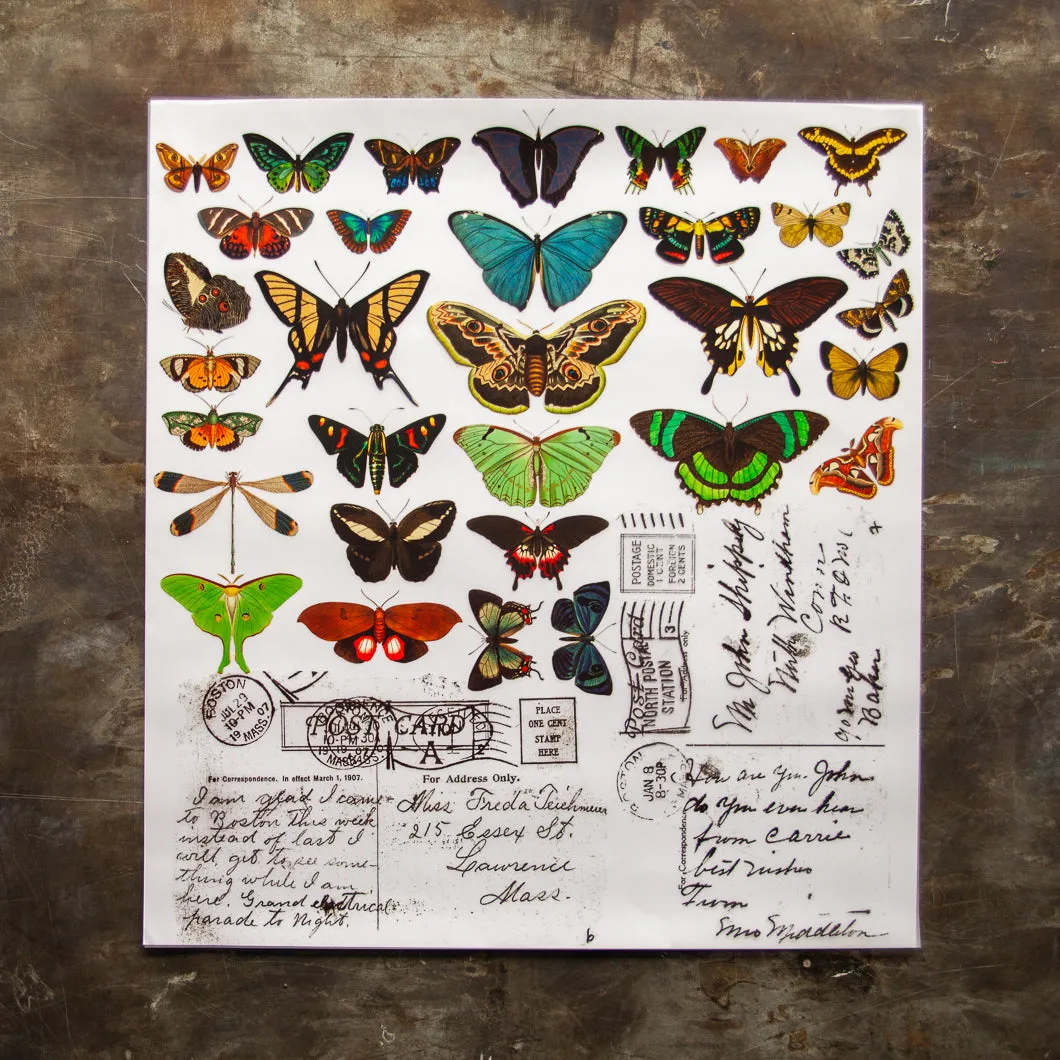 POSTAGE
DOMESTIC
1 CENT
FOREIGN
2 CENTS
Mr John Shippey
North Windham
Conn
Post Card
NORTH POSTAL
STATION
3
BOSTON
JUL 29
19-PM
MASS.
07
POST CARD
A
2
PLACE
ONE CENT
STAMP
HERE
For Correspondence. In effect March 1, 1907.
For Address Only.
I am glad I came
to Boston this week
instead of last I
will get to see some-
thing while I am
here. Grand electrical
parade to Night.
Miss Freda Teichmeier
215 Essex St.
Lawrence
Mass.
BOSTON
JAN 8
8-30P
For Correspondence
How are you John
do you ever hear
from Carrie
best wishes
From
Mrs Middleton
6